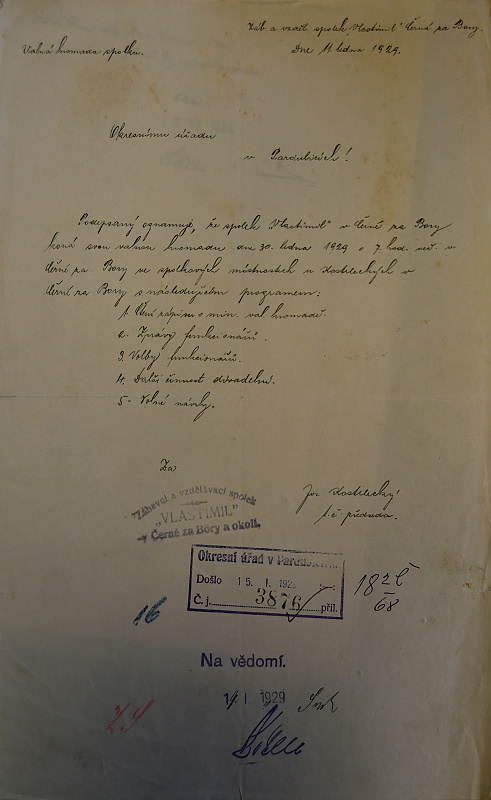 Záb. a vzděl. spolek "Vlastimil" Černá za Bory.
Valná hromada spolku.
Dne 11. ledna 1929.
Okresnímu úřadu
v Pardubicích!
Podepsaný oznamuje, že spolek "Vlastimil" v Černé za Bory
koná svou valnou hromadu dne 30. ledna 1929 o 7. hod. več. v
Černé za Bory ve spolkových místnostech u Kosteleckých v
Černé za Bory s následujícím programem:
1. Čtení zápisu o min. val. hromadě.
2. Zprávy funkcionářů.
3. Volby funkcionářů.
4. Další činnost divadelní.
5. Volné návrhy.
Za
Zábavní a vzdělávací spolek
"VLASTIMIL"
v Černé za Bory a okolí.
Jos. Kostelecký
t. č. předseda.
Okresní úřad v Pardubicích
Došlo 15. I. 1929
Č. j. 3876 příl.
68
16
Na vědomí.
19 I 1929